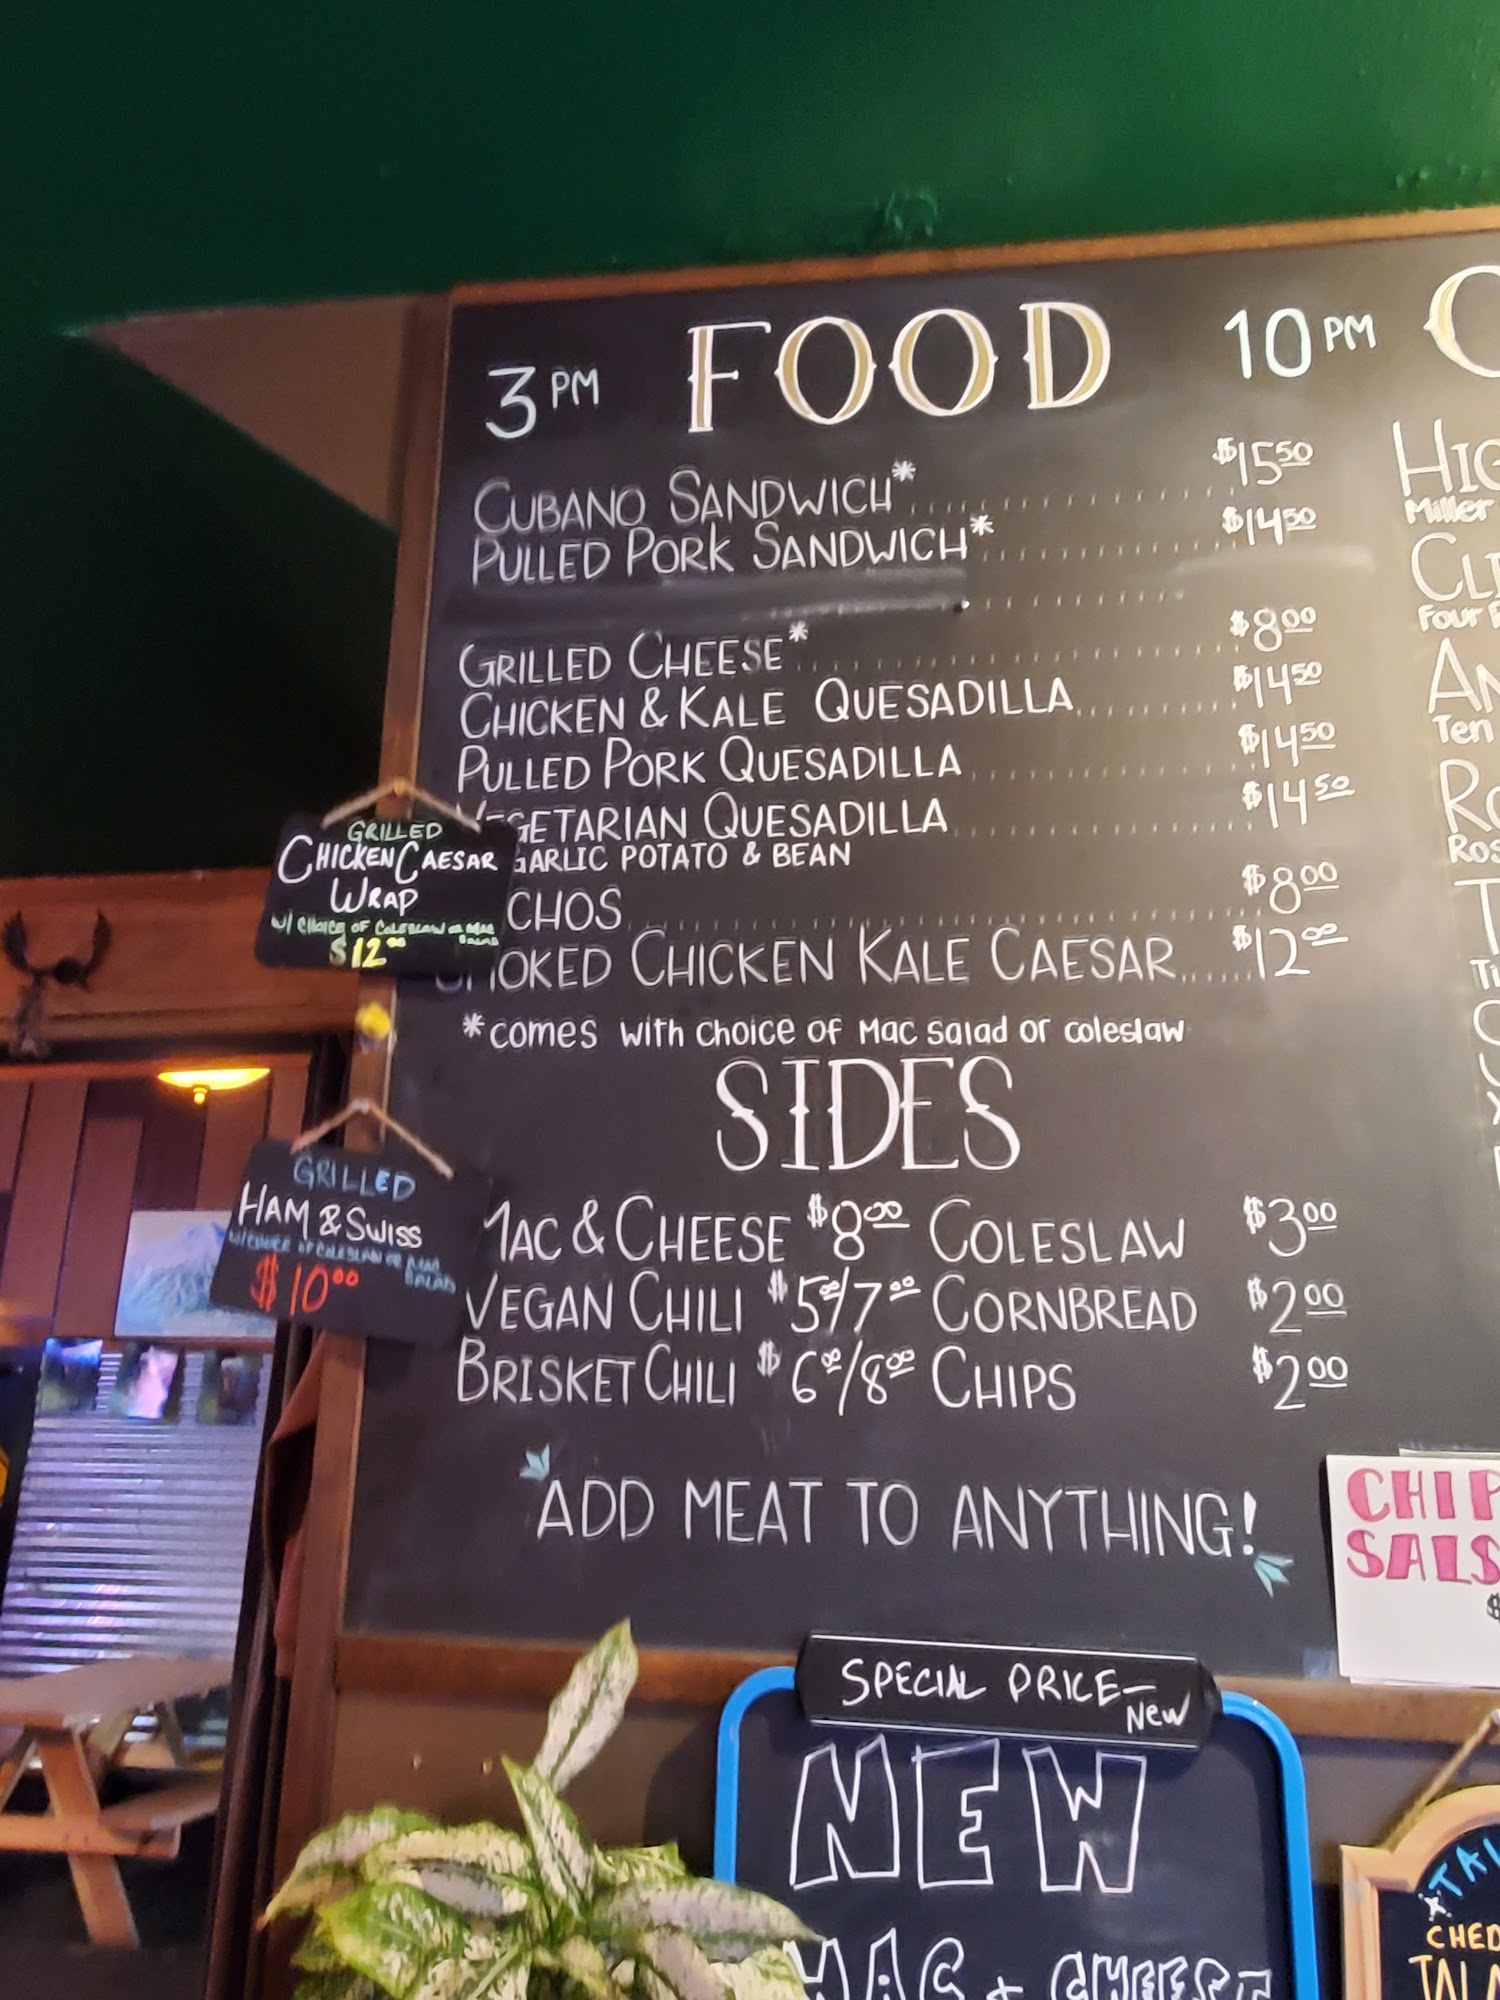 3 PM FOOD 10 PM
CUBANO SANDWICH* $15 50
PULLED PORK SANDWICH* $14 50
GRILLED CHEESE* $8 00
CHICKEN & KALE QUESADILLA $14 50
PULLED PORK QUESADILLA $14 50
VEGETARIAN QUESADILLA $14 50
GARLIC POTATO & BEAN
CHOS $8 00
OKED CHICKEN KALE CAESAR $12 00
*COMES WITH CHOICE OF MAC SALAD OR COLESLAW
SIDES
MAC & CHEESE $8 00 COLESLAW $3 00
VEGAN CHILI $5 00/7 00 CORNBREAD $2 00
BRISKET CHILI $6 00/8 00 CHIPS $2 00
ADD MEAT TO ANYTHING!
GRILLED
CHICKEN CAESAR
WRAP
W/ CHOICE OF COLESLAW OR MAC
SALAD
$12 00
GRILLED
HAM & SWISS
W/ CHOICE OF COLESLAW OR MAC
SALAD
$10 00
SPECIAL PRICE-
NEW
NEW
MAC & CHEESE
HIG
Miller
CLI
Four
AN
Ten
RO
Ros
T
Ti
CHIP
SALS
$
TAL
CHED
TALA